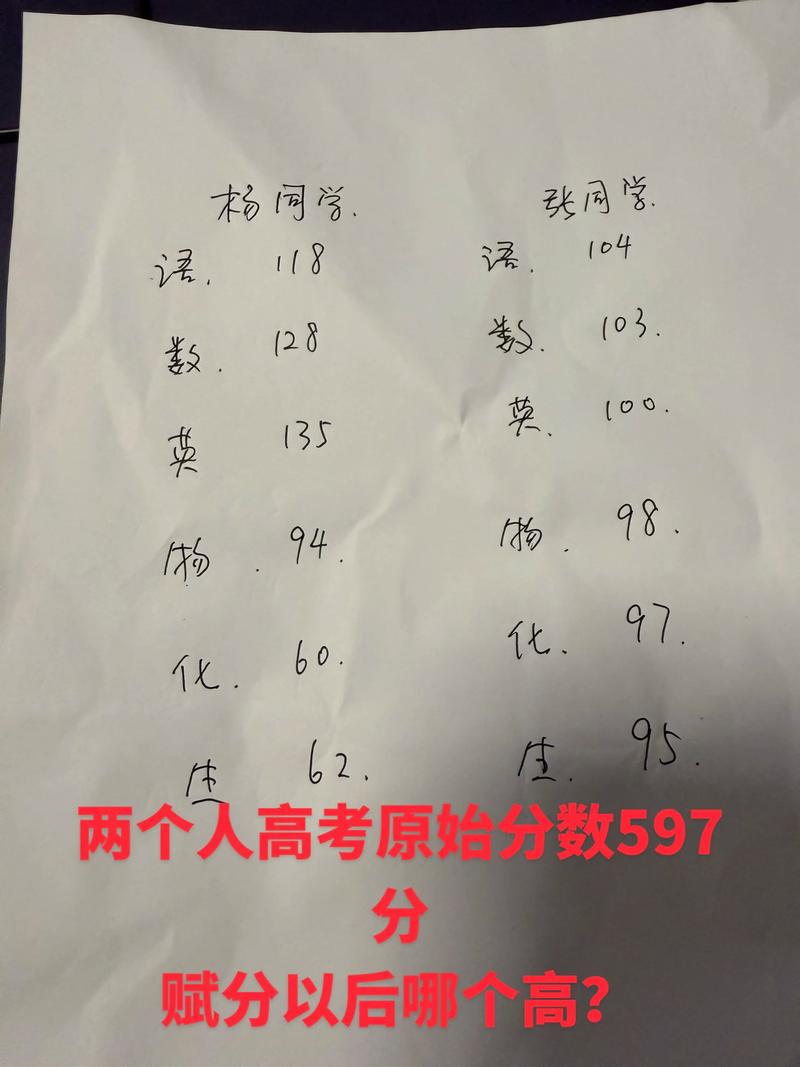 杨同学.
语. 118
数. 128
英 135
物. 94.
化. 60.
生 62.
张同学.
语. 104
数. 103.
英. 100.
物. 98.
化. 97.
生. 95.
两个人高考原始分数597
分
赋分以后哪个高？